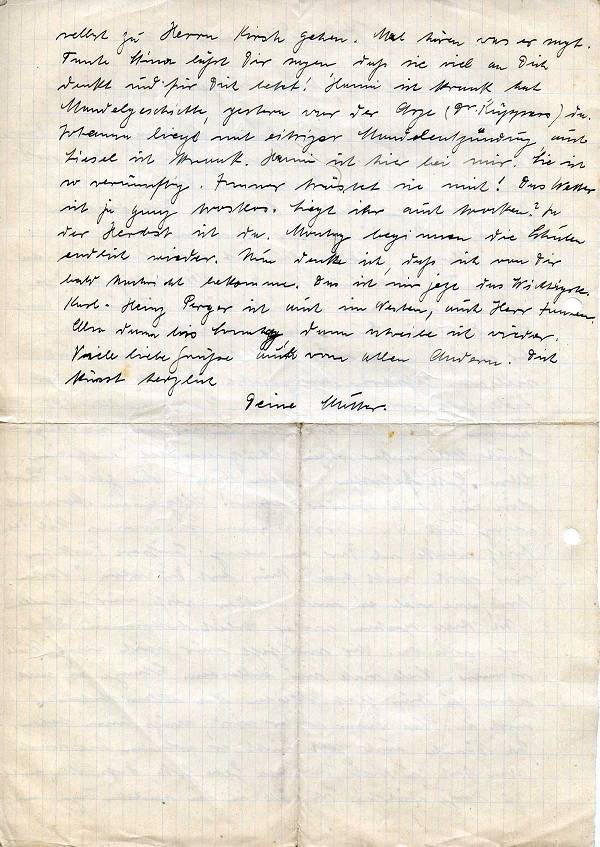 selbst zu Herrn Kirsch gehen. Mal hören was er sagt.
Tante Mina läßt Dir sagen daß sie viel an Dich
denkt und für Dich betet! Hanni ist krank hat
Mandelgeschichte, gestern war der Arzt (Dr. Küppers) da.
Johanna liegt mit eitriger Mandelentzündung, auch
Liesel ist krank. Hanni ist hier bei mir. Sie ist
so vernünftig. Immer tröstet sie mich! Das Wetter
ist ja ganz trostlos. Liegt ihr auch trocken? Ja
der Herbst ist da. Montag beginnen die Schulen
endlich wieder. Nun denke ich, daß ich von Dir
bald Nachricht bekomme. Das ist mir jetzt das Wichtigste.
Karl-Heinz Perger ist auch im Westen, auch Herr
Also dann bis Sonntag, dann schreibe ich wieder.
Viele liebe Grüße auch von allen Andern. Dich
küsst herzlich
Deine Mutter.